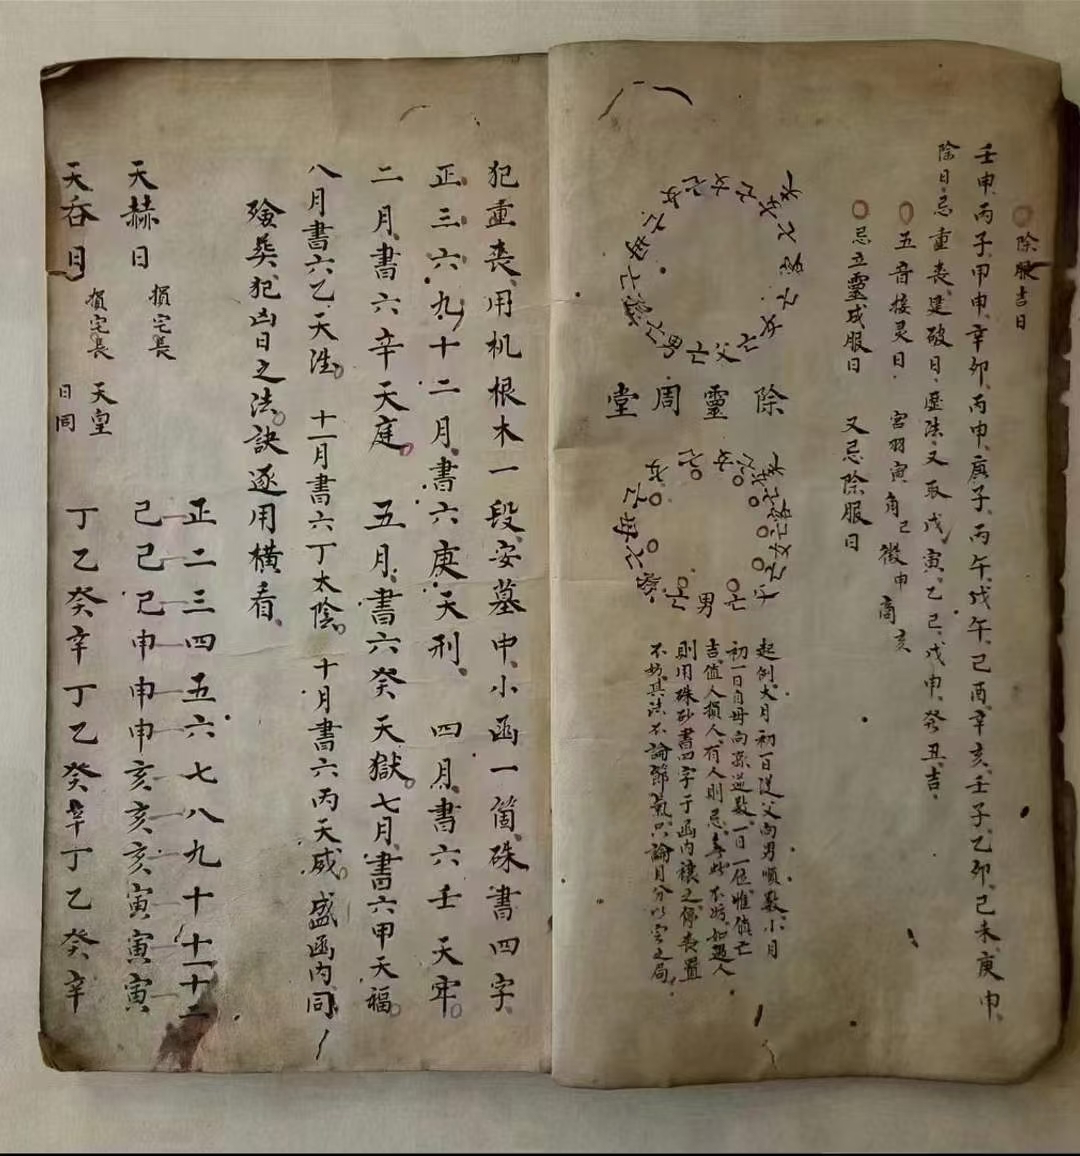 除服吉日
壬申、丙子、甲申、辛卯、丙申、庚子、丙午、戊午、己酉、辛亥、壬子、乙卯、己未、庚申、
除日、忌重喪、建破日、歷法、又取戊寅、乙巳、戊申、癸丑、吉、
五音接灵日 宮羽寅角巳徵申商亥
忌立靈成服日 又忌除服日
除靈周堂
起例、大月初一日從父向男順數、小月
初一日自母向孫逆數、一日一位惟值亡
吉、值人損人、有人則忌、無 不妨、如遇人
則用硃砂書四字于函內禳之、停喪置
不妨、其法不論節氣、只論月分以定之局、
犯重喪、用机根木一段、安墓中、小函一箇、硃書四字、
正三六九十二月、書六庚天刑、 四月、書六壬天牢。
二月、書六辛天庭。 五月、書六癸天獄。七月、書六甲天福。
八月書六乙天德。 十一月書六丁太陰。 十月書六丙天威。盛函內同、
殮葬犯凶日之法。訣逐用橫看、
正二三四五六七八九十十一十二
天赫日 損宅長 己己己申申申亥亥亥寅寅寅
天吞日 損宅長 天皇日同 丁乙癸辛丁乙癸辛丁乙癸辛